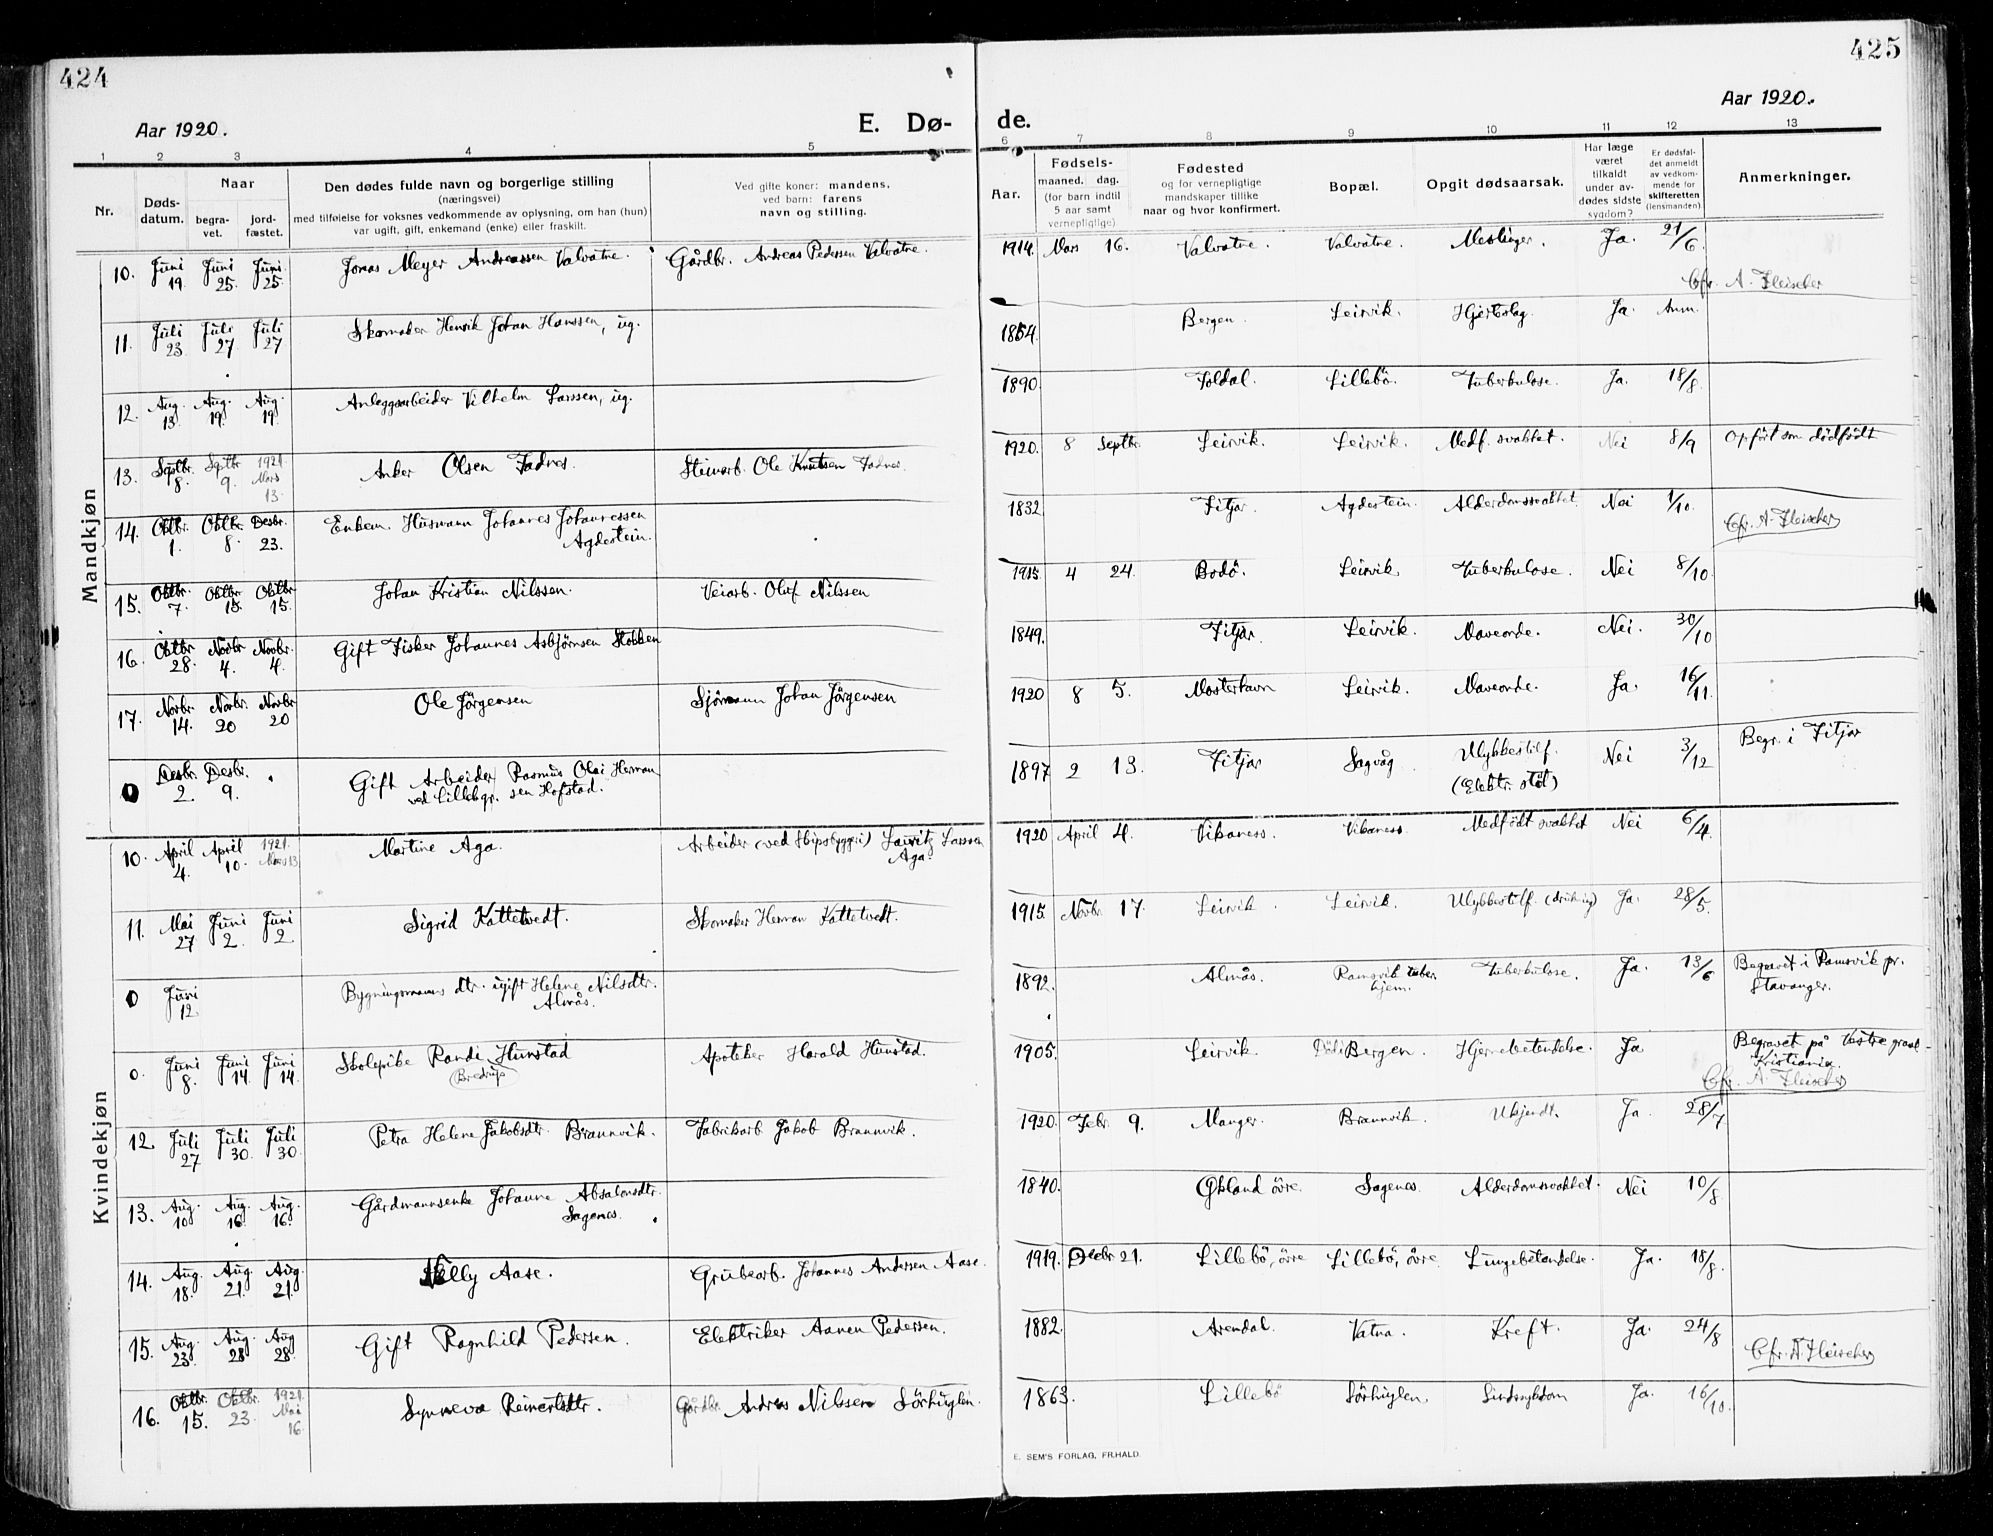 424
425
Aar 1920.
E. Dø-
de.
Aar 1920.
1 2 3 4 5 6 7 8 9 10 11 12 13
Nr.
Døds-
datum.
Naar
begra-
vet.
jord-
fæstet.
Den dødes fulde navn og borgerlige stilling
(næringsvei)
med tilføielse for voksnes vedkommende av oplysning, om han (hun)
var ugift, gift, enkemand (enke) eller fraskilt.
Ved gifte koner: mandens,
ved barn: farens
navn og stilling.
Aar.
Fødsels-
maaned. dag.
(for barn indtil
5 aar samt
vernepligtige)
Fødested
og for vernepligtige
mandskaper tillike
naar og hvor konfirmert.
Bopæl.
Opgit dødsaarsak.
Har læge
været
tilkaldt
under av-
dødes sidste
sygdom?
Er dødsfal-
det anmeldt
av vedkom-
mende for
skifteretten
(lensmanden).
Anmerkninger.
Mandkjøn
10. Juni 19 Juni 25. Juni 25. Jonas Meyer Andreassen Valvatne. Gårdbr. Andreas Pedersen Valvatne. 1914. Mars 16. Valvatne. Valvatne. Meslinger. Ja. 21/6.
Cfr. A. Fleischer
11. Juli 23 Juli 27 Juli 27 Skomaker Henrik Johan Hanssen, ug. 1854. Bergen. Leirvik. Hjerteslag. Ja. Anm.
12. Aug. 13. Aug. 19. Aug. 19. Anleggsarbeider Vilhelm Larssen, ug. 1890. Lillebö. Tuberkulose. Ja. 18/8.
13. Septbr. 8. Septbr. 9. 1921. Mars 13. Anker Olsen Steinarb. Ole Knutsen 1920. 8 Septbr. Leirvik. Leirvik. Medf. svakhet. Nei 8/9 Opført som dödfödt
14. Oktbr. 1. Oktbr. 8. Desbr. 23. Enkem. Husmann Johannes Johannessen
Agdestein. 1832. Fitjar. Agdestein. Alderdomssvakhet. Nei 1/10.
Cfr. A. Fleischer
15. Oktbr. 7. Oktbr. 15. Oktbr. 15. Johan Kristian Nilssen. Veiarb. Oluf Nilssen 1915. 4 24. Bodö. Leirvik Tuberkulose. Nei 8/10.
16. Oktbr. 28. Novbr. 4. Novbr. 4. Gift Fisker Johannes Asbjørnsen Stokken 1849. Fitjar. Leirvik. Maveonde. Nei. 30/10
17. Novbr. 14. Novbr. 20 Novbr. 20 Ole Jörgensen Sjömann Johan Jörgensen 1920 8 5. Mosterhavn Leirvik. Maveonde. Ja. 16/11.
0 Desbr. 2. Desbr. 9. Gift Arbeider Rasmus Olai Herman
ved Lillebgr. sen Hofstad. 1897 2 13. Fitjar Sagvåg Ulykkestilf.
(Elektr. stöt) Nei 3/12 Begr. i Fitjar
Kvindekjøn
10. April 4. April 10. 1921. Mars 13 Martine Aga. Arbeider (ved Skipsbyggeri) Lauritz Larssen
Aga. 1920 April 4. Vikaness. Vikaness Medfödt svakhet Nei 6/4.
11. Mai 27 Juni 2. Juni 2. Sigrid Kattetvedt. Skomaker Herman Kattetvedt. 1915. Novbr. 17. Leirvik. Leirvik. Ulykkestilf. (drukning) Ja. 28/5.
0 Juni 12. Bygningsmanns dtr. ugift Helene Nilsdtr.
Almås. 1892. Almås. Ramsvik tuber.
hjem. Tuberkulose. Ja. 13/6 Begravet i Ramsvik pr.
Stavanger.
0. Juni 8. Juni 14. Juni 14. Skolepike Randi Hunstad
(Bredrup) Apoteker Harald Hunstad. 1905. Leirvik. Död i Bergen. Hjernebetendelse. Ja Begravet på Vestre gravl.
Kristiania.
Cfr. A. Fleischer
12. Juli 27 Juli 30. Juli 30. Petra Helene Jakobsdtr. Brannvik. Fabrikarb. Jakob Brannvik. 1920. Febr. 9. Manger. Brannvik. Ukjendt. Ja. 28/7.
13. Aug. 10 Aug. 16. Aug. 16. Gårdmannsenke Johanne Absalonsdtr.
Sagenes. 1840. Økland övre. Sagenes. Alderdomssvakhet. Nei 10/8.
14. Aug. 18. Aug. 21. Aug. 21. Nelly Aase. Grubearb. Johannes Andersen Aase. 1919. Decbr. 21. Lillebö, övre Lillebö, övre. Lungebetendelse. Ja. 18/8.
15. Aug. 23. Aug. 28 Aug 28. Gift Ragnhild Pedersen. Elektriker Aanen Pedersen. 1882. Arendal. Vatna. Kreft. Ja. 24/8
Cfr. A. Fleischer
16. Oktbr. 15. Oktbr. 23. 1921. Mai 16. Synneva Reinertsdtr. Gårdbr. Andreas Nilssen Sörhuglen. 1863. Lillebö Sörhuglen. Sindssykdom Ja. 16/10.
E. SEM'S FORLAG, FR.HALD.